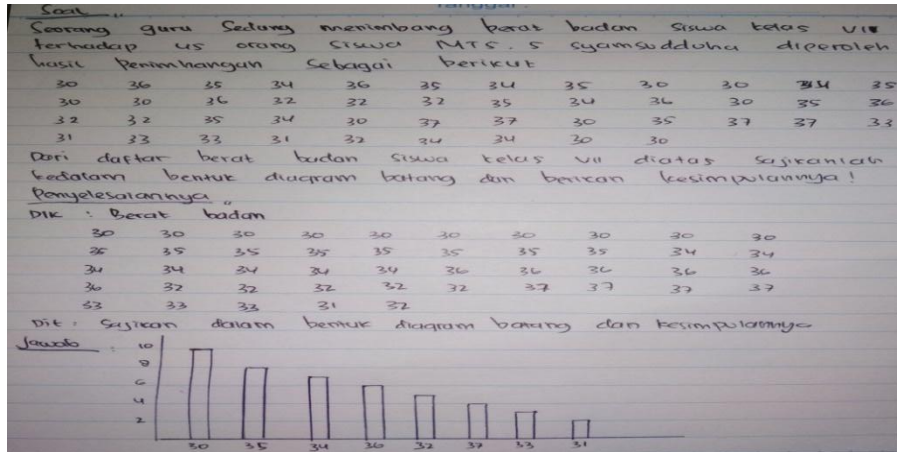 Soal ,,
Seorang guru Sedang menimbang berat badan siswa kelas VII
terhadap 45 orang siswa MTS. S Syamsudduha diperoleh
hasil Penimbangan Sebagai berikut
30 36 35 34 36 35 34 35 30 30 34 35
30 30 36 32 32 32 35 34 36 30 35 36
32 32 35 34 30 37 37 30 35 37 37 33
31 33 33 31 32 34 34 30 30
Dari daftar berat badan siswa kelas VII diatas sajikanlah
kedalam bentuk diagram batang dan berikan kesimpulannya !
Penyelesaiannya ,,
DIK : Berat badan
30 30 30 30 30 30 30 30 30 30
35 35 35 35 35 35 35 35 34 34
34 34 34 34 34 36 36 36 36 36
36 32 32 32 32 32 37 37 37 37
33 33 33 31 32
Dit : Sajikan dalam bentuk diagram batang dan kesimpulannya
Jawab :
10
8
6
4
2
30 35 34 36 32 37 33 31